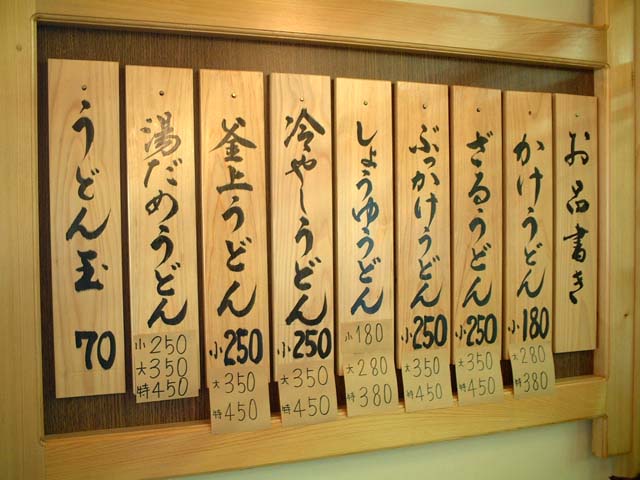 お品書き
かけうどん
小180
大280
特380
ざるうどん
小250
大350
特450
ぶっかけうどん
小250
大350
特450
しょうゆうどん
小180
大280
特380
冷やしうどん
小250
大350
特450
釜上うどん
小250
大350
特450
湯だめうどん
小250
大350
特450
うどん玉
70